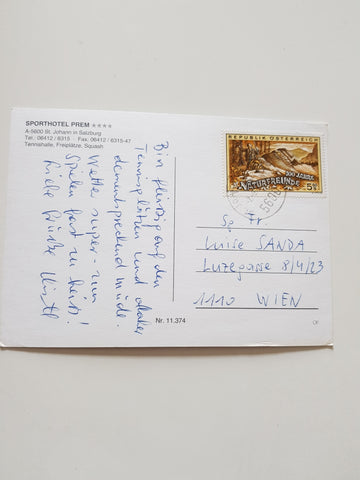 SPORTHOTEL PREM ★★★★
A-5600 St. Johann in Salzburg
Tel. 06412 / 6315 · Fax 06412 / 6315-47
Tennishalle, Freiplätze, Squash
Bin fleißig auf den
Tennisplätzen und daher
dementsprechend müde.
Wetter super - zum
Spielen fast zu heiß!
Liebe Grüße
REPUBLIK ÖSTERREICH
100 JAHRE
NATURFREUNDE
5
560
Fr.
Luise SANDA
Luzegasse 8/4/23
1110 WIEN
Nr. 11.374